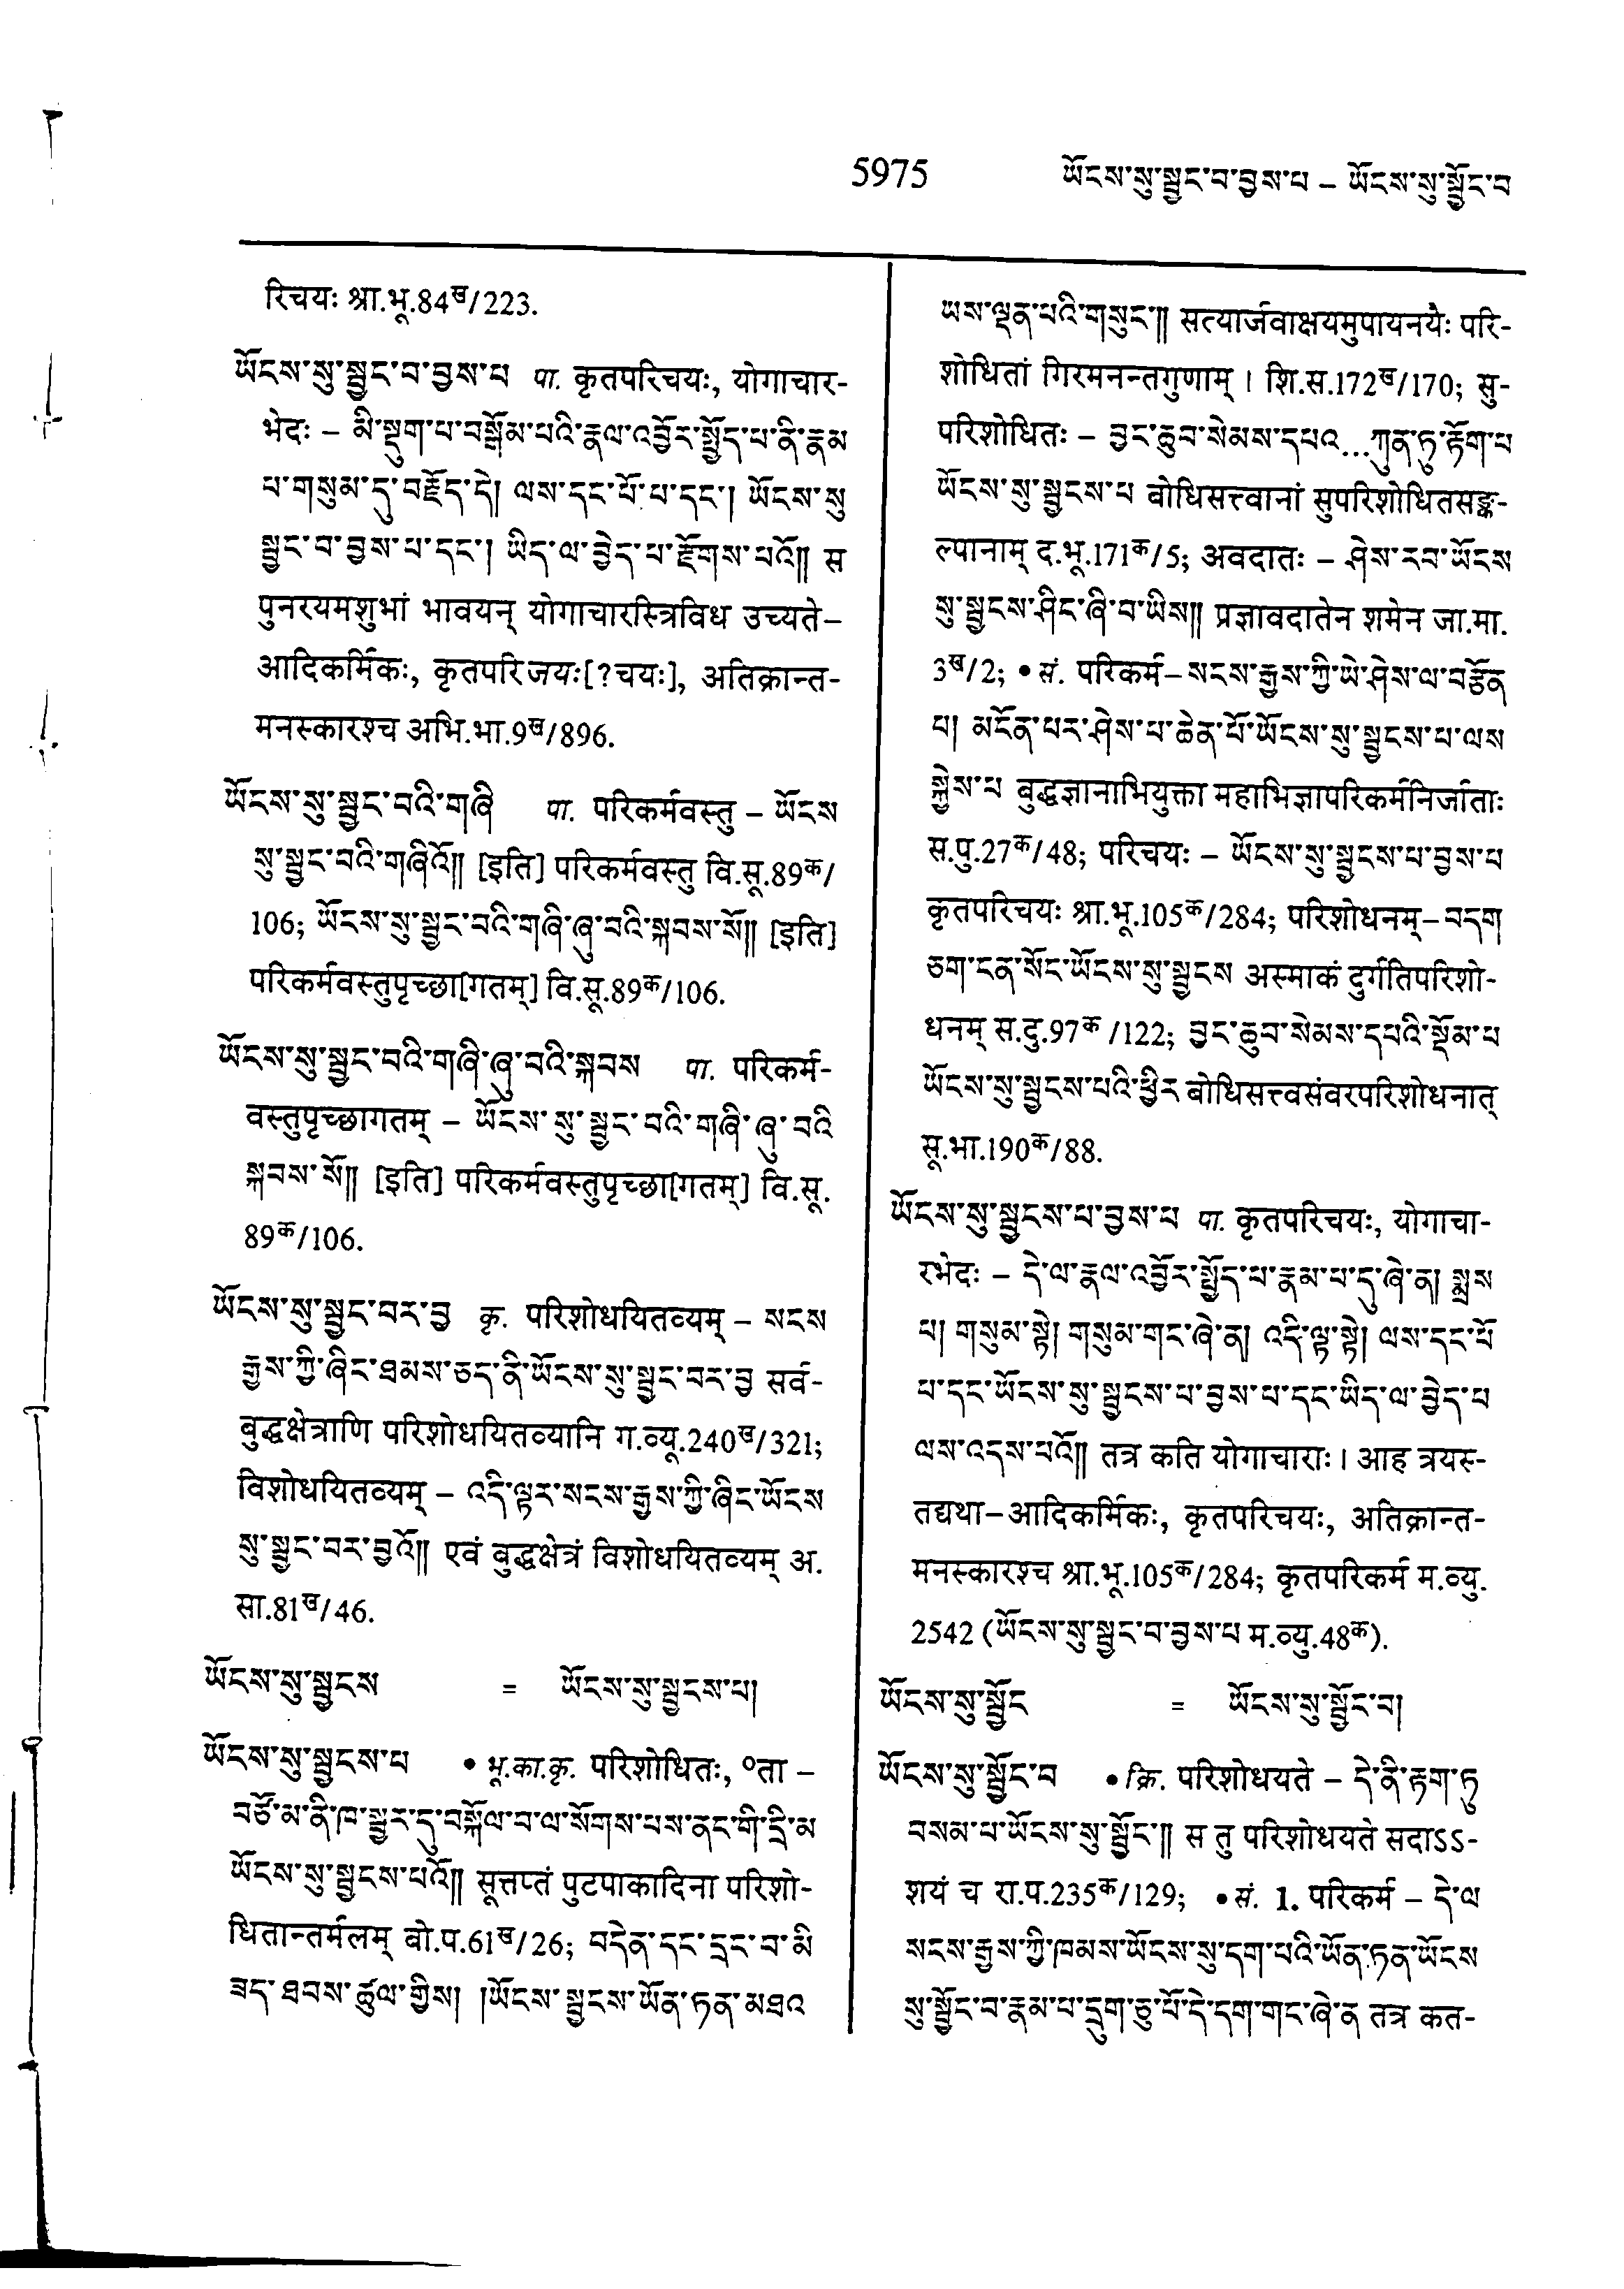 5975
ཡོངས་སུ་སྦྱང་བ་བྱས་པ – ཡོངས་སུ་སྦྱོང་བ
रिचयः श्रा.भू.84ख/223.
ཡོངས་སུ་སྦྱང་བ་བྱས་པ पा. कृतपरिचयः, योगाचार-
भेदः – མི་སྡུག་པ་བསྒོམ་པའི་རྣལ་འབྱོར་སྤྱོད་པ་ནི་རྣམ
པ་གསུམ་དུ་བརྗོད་དེ། ལས་དང་པོ་པ་དང་། ཡོངས་སུ
སྦྱང་བ་བྱས་པ་དང་། ཡིད་ལ་བྱེད་པ་རྫོགས་པའོ༎ स
पुनरयमशुभां भावयन् योगाचारस्त्रिविध उच्यते–
आदिकर्मिकः, कृतपरिजयः[?चयः], अतिक्रान्त-
मनस्कारश्च अभि.भा.9ख/896.
ཡོངས་སུ་སྦྱང་བའི་གཞི पा. परिकर्मवस्तु – ཡོངས
སུ་སྦྱང་བའི་གཞིའོ༎ [इति] परिकर्मवस्तु वि.सू.89क/
106; ཡོངས་སུ་སྦྱང་བའི་གཞི་ཞུ་བའི་སྐབས་སོ༎ [इति]
परिकर्मवस्तुपृच्छा[गतम्] वि.सू.89क/106.
ཡོངས་སུ་སྦྱང་བའི་གཞི་ཞུ་བའི་སྐབས पा. परिकर्म-
वस्तुपृच्छागतम् – ཡོངས་སུ་སྦྱང་བའི་གཞི་ཞུ་བའི
སྐབས་སོ༎ [इति] परिकर्मवस्तुपृच्छा[गतम्] वि.सू.
89क/106.
ཡོངས་སུ་སྦྱང་བར་བྱ कृ. परिशोधयितव्यम् – སངས
རྒྱས་ཀྱི་ཞིང་ཐམས་ཅད་ནི་ཡོངས་སུ་སྦྱང་བར་བྱ सर्व-
बुद्धक्षेत्राणि परिशोधयितव्यानि ग.व्यू.240ख/321;
विशोधयितव्यम् – འདི་ལྟར་སངས་རྒྱས་ཀྱི་ཞིང་ཡོངས
སུ་སྦྱང་བར་བྱའོ༎ एवं बुद्धक्षेत्रं विशोधयितव्यम् अ.
सा.81ख/46.
ཡོངས་སུ་སྦྱངས = ཡོངས་སུ་སྦྱངས་པ།
ཡོངས་སུ་སྦྱངས་པ • भू.का.कृ. परिशोधितः, ०ता –
བཙོ་མ་ནི་ཁ་སྦྱར་དུ་བསྐོལ་བ་ལ་སོགས་པས་ནང་གི་དྲི་མ
ཡོངས་སུ་སྦྱངས་པའོ༎ सूत्तप्तं पुटपाकादिना परिशो-
धितान्तर्मलम् बो.प.61ख/26; བདེན་དང་དྲང་བ་མི
ཟད་ཐབས་ཚུལ་གྱིས། །ཡོངས་སྦྱངས་ཡོན་ཏན་མཐའ
ཡས་ལྡན་པའི་གསུང་༎ सत्यार्जवाक्षयमुपायनयैः परि-
शोधितां गिरमनन्तगुणाम् । शि.स.172ख/170; सु-
परिशोधितः – བྱང་ཆུབ་སེམས་དཔའ...ཀུན་ཏུ་རྟོག་པ
ཡོངས་སུ་སྦྱངས་པ बोधिसत्त्वानां सुपरिशोधितसङ्क-
ल्पानाम् द.भू.171क/5; अवदातः – ཤེས་རབ་ཡོངས
སུ་སྦྱངས་ཤིང་ཞི་བ་ཡིས༎ प्रज्ञावदातेन शमेन जा.मा.
3ख/2; • सं. परिकर्म–སངས་རྒྱས་ཀྱི་ཡེ་ཤེས་ལ་བརྩོན
པ། མངོན་པར་ཤེས་པ་ཆེན་པོ་ཡོངས་སུ་སྦྱངས་པ་ལས
སྐྱེས་པ बुद्धज्ञानाभियुक्ता महाभिज्ञापरिकर्मनिर्जाताः
स.पु.27क/48; परिचयः – ཡོངས་སུ་སྦྱངས་པ་བྱས་པ
कृतपरिचयः श्रा.भू.105क/284; परिशोधनम्–བདག
ཅག་ངན་སོང་ཡོངས་སུ་སྦྱངས अस्माकं दुर्गतिपरिशो-
धनम् स.दु.97क/122; བྱང་ཆུབ་སེམས་དཔའི་སྡོམ་པ
ཡོངས་སུ་སྦྱངས་པའི་ཕྱིར बोधिसत्त्वसंवरपरिशोधनात्
सू.भा.190क/88.
ཡོངས་སུ་སྦྱངས་པ་བྱས་པ पा. कृतपरिचयः, योगाचा-
रभेदः – དེ་ལ་རྣལ་འབྱོར་སྤྱོད་པ་རྣམ་པ་དུ་ཞེ་ན། སྨྲས
པ། གསུམ་སྟེ། གསུམ་གང་ཞེ་ན། འདི་ལྟ་སྟེ། ལས་དང་པོ
པ་དང་ཡོངས་སུ་སྦྱངས་པ་བྱས་པ་དང་ཡིད་ལ་བྱེད་པ
ལས་འདས་པའོ༎ तत्र कति योगाचाराः । आह त्रयस्-
तद्यथा–आदिकर्मिकः, कृतपरिचयः, अतिक्रान्त-
मनस्कारश्च श्रा.भू.105क/284; कृतपरिकर्म म.व्यु.
2542 (ཡོངས་སུ་སྦྱང་བ་བྱས་པ म.व्यु.48क).
ཡོངས་སུ་སྦྱོང = ཡོངས་སུ་སྦྱོང་བ།
ཡོངས་སུ་སྦྱོང་བ • क्रि. परिशोधयते – དེ་ནི་རྟག་ཏུ
བསམ་པ་ཡོངས་སུ་སྦྱོང་༎ स तु परिशोधयते सदाऽऽ-
शयं च रा.प.235क/129; • सं. 1. परिकर्म – དེ་ལ
སངས་རྒྱས་ཀྱི་ཁམས་ཡོངས་སུ་དག་པའི་ཡོན་ཏན་ཡོངས
སུ་སྦྱོང་བ་རྣམ་པ་དྲུག་ཅུ་པོ་དེ་དག་གང་ཞེ་ན तत्र कत-